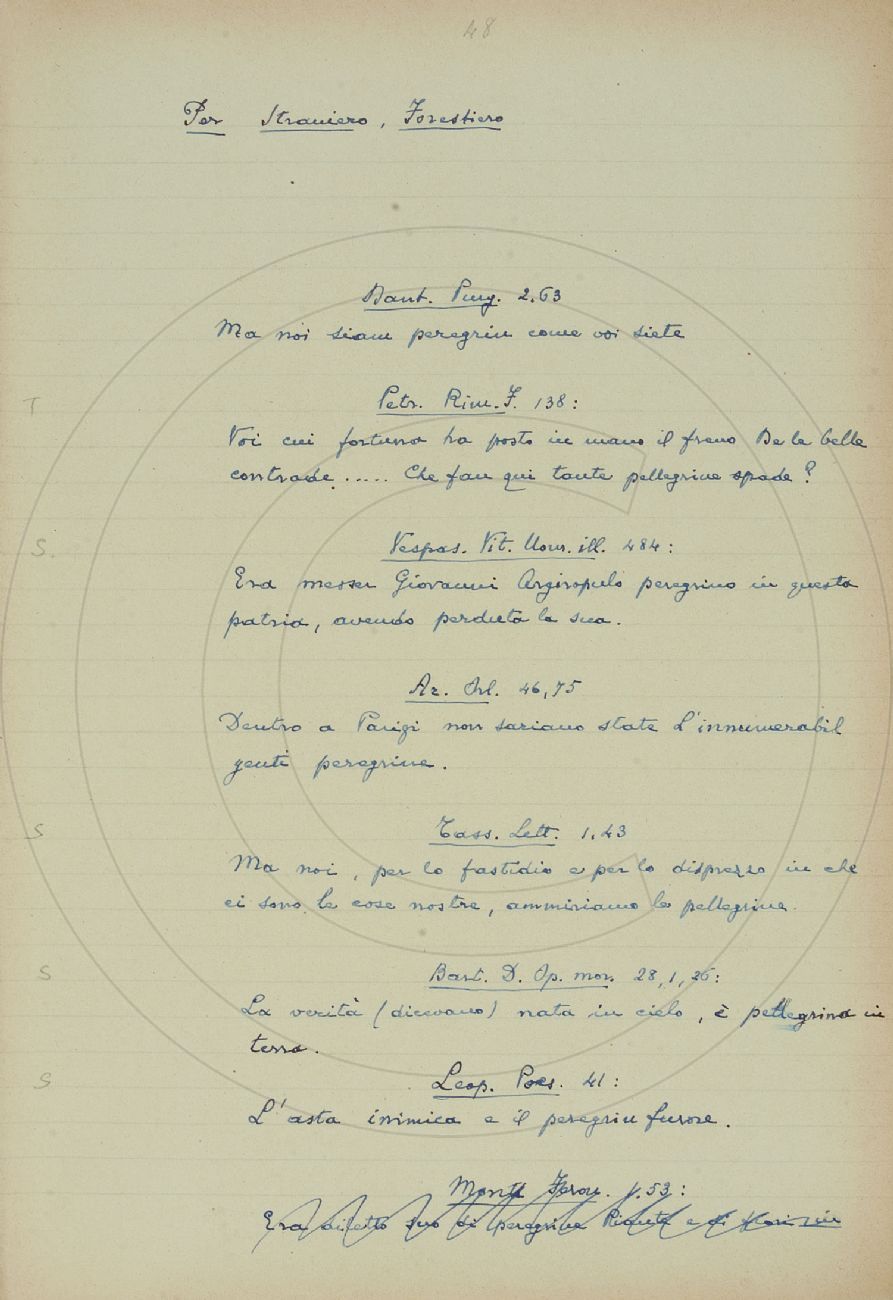 48
Per Straniero, Forestiero
Dant. Purg. 2.63
Ma noi siam peregrin come voi siete
T
Petr. Rim. F. 138:
Voi cui fortuna ha posto in mano il freno De le belle
contrade ..... Che fan qui tante pellegrine spade?
S.
Vespas. Vit. Uom. ill. 484:
Era messer Giovanni Argiropulo peregrino in questa
patria, avendo perduta la sua.
Ar. Orl. 46,75
Dentro a Parigi non sariano state L'innumerabil
genti peregrine.
S
Tass. Lett. 1.43
Ma noi, per lo fastidio e per lo disprezzo in che
ci sono le cose nostre, ammiriamo le pellegrine.
S
Bart. D. Op. mor. 28,1,26:
La verità (dicevano) nata in cielo, è pellegrina in
terra.
S
Leop. Poes. 41:
L'asta inimica e il peregrin furore.
Monti Feron. 1.53:
Era diletto suo di peregrine Piante e di fiori